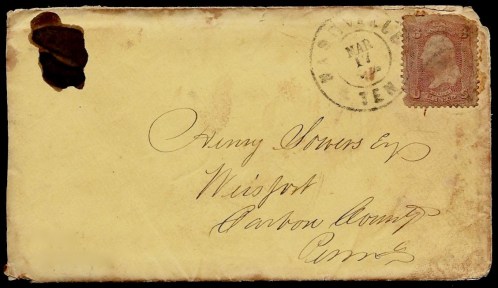 NASHVILLE
TEN
MAR
17
Henry Sowers Esq
Weisport
Carbon County
Penna